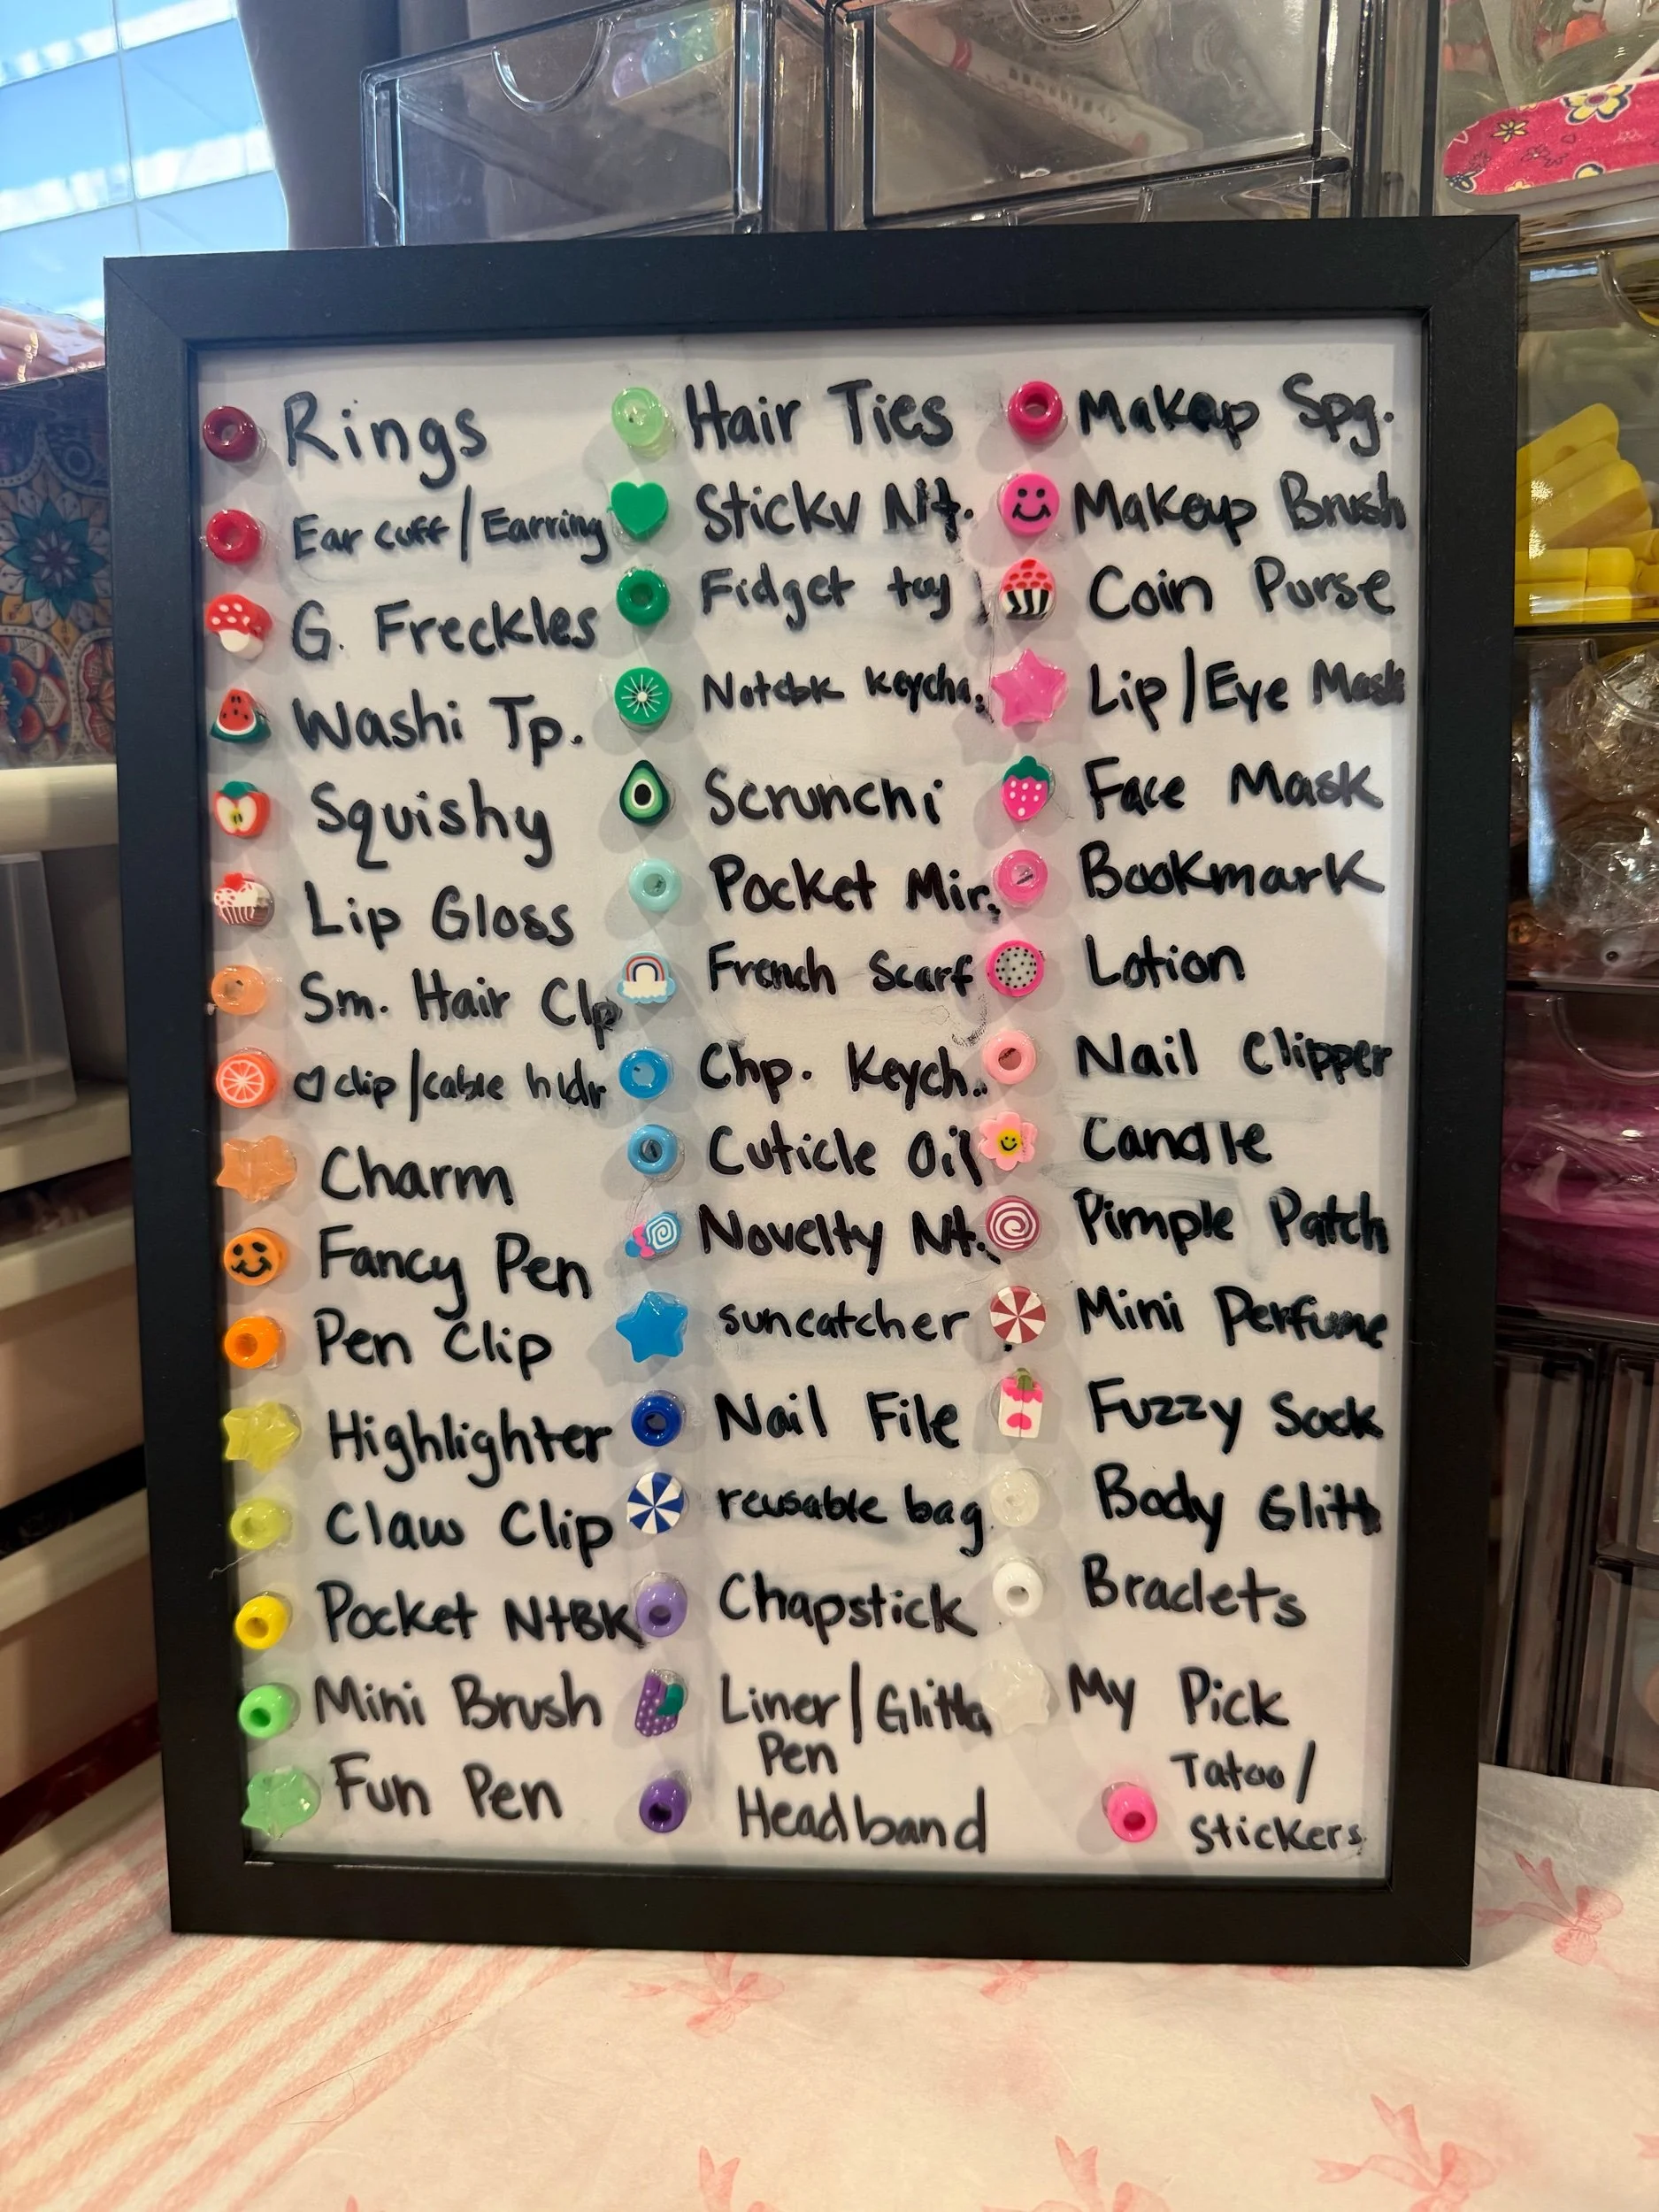 Rings
Ear cuff/Earring
G. Freckles
Washi Tp.
Squishy
Lip Gloss
Sm. Hair Clp
♡ clip/cable hldr
Charm
Fancy Pen
Pen Clip
Highlighter
Claw Clip
Pocket NtBK
Mini Brush
Fun Pen
Hair Ties
Sticky Nt.
Fidget toy
Notebk Keycha.
Scrunchi
Pocket Mir.
French Scarf
Chp. Keych..
Cuticle Oil
Novelty Nt.
suncatcher
Nail File
reusable bag
Chapstick
Liner/Glitta
Pen
Headband
Makeup Spg.
Makeup Brush
Coin Purse
Lip/Eye Mask
Face Mask
Bookmark
Lotion
Nail Clipper
Candle
Pimple Patch
Mini Perfume
Fuzzy Sock
Body Glitt
Braclets
My Pick
Tatoo/
Stickers